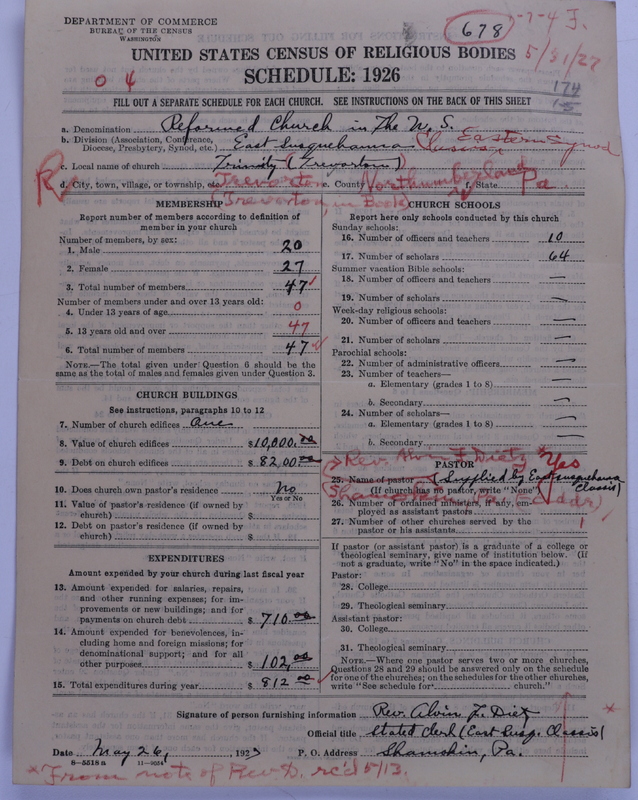 DEPARTMENT OF COMMERCE
BUREAU OF THE CENSUS
WASHINGTON
678
5/31/27
174
UNITED STATES CENSUS OF RELIGIOUS BODIES
SCHEDULE: 1926
0 4
FILL OUT A SEPARATE SCHEDULE FOR EACH CHURCH. SEE INSTRUCTIONS ON THE BACK OF THIS SHEET
a. Denomination Reformed Church in The U. S.
b. Division (Association, Conference, Diocese, Presbytery, Synod, etc.) East Susquehanna Classis Eastern Synod
c. Local name of church Trinity (Trevorton)
d. City, town, village, or township, etc. Trevorton e. County Northumberland f. State Pa
(Trevorton, in Book)
MEMBERSHIP
Report number of members according to definition of member in your church
Number of members, by sex:
1. Male 20
2. Female 27
3. Total number of members 47
Number of members under and over 13 years old:
4. Under 13 years of age 0
5. 13 years old and over 47
6. Total number of members 47
NOTE.—The total given under Question 6 should be the same as the total of males and females given under Question 3.
CHURCH BUILDINGS
See instructions, paragraphs 10 to 12
7. Number of church edifices One
8. Value of church edifices $10,000.00
9. Debt on church edifices $8200.00
10. Does church own pastor's residence No
Yes or No
11. Value of pastor's residence (if owned by church) $
12. Debt on pastor's residence (if owned by church) $
EXPENDITURES
Amount expended by your church during last fiscal year
13. Amount expended for salaries, repairs, and other running expenses; for improvements or new buildings; and for payments on church debt $ 710.00
14. Amount expended for benevolences, including home and foreign missions; for denominational support; and for all other purposes $ 102.00
15. Total expenditures during year $ 812.00
CHURCH SCHOOLS
Report here only schools conducted by this church
Sunday schools:
16. Number of officers and teachers 10
17. Number of scholars 64
Summer vacation Bible schools:
18. Number of officers and teachers —
19. Number of scholars —
Week-day religious schools:
20. Number of officers and teachers —
21. Number of scholars —
Parochial schools:
22. Number of administrative officers —
23. Number of teachers—
a. Elementary (grades 1 to 8) —
b. Secondary —
24. Number of scholars—
a. Elementary (grades 1 to 8) —
b. Secondary —
PASTOR
Rev. Alvin F. Dietz Yes
25. Name of pastor (Supplied by East Susquehanna Classis)
(If church has no pastor, write "None")
26. Number of ordained ministers, if any, employed as assistant pastors
27. Number of other churches served by the pastor or his assistants 1
If pastor (or assistant pastor) is a graduate of a college or theological seminary, give name of institution below. (If not a graduate, write "No" in the space indicated.)
Pastor:
28. College
29. Theological seminary
Assistant pastor:
30. College
31. Theological seminary
NOTE.—Where one pastor serves two or more churches, Questions 28 and 29 should be answered only on the schedule for one of the churches; on the schedules for the other churches, write "See schedule for church."
Signature of person furnishing information Rev. Alvin F. Dietz
Official title Stated Clerk (East Susq. Classis)
Date May 26, 1927 P. O. Address Shamokin, Pa.
8-5518 a 11-9054
* From note of Rev. D. rec'd 5/13.